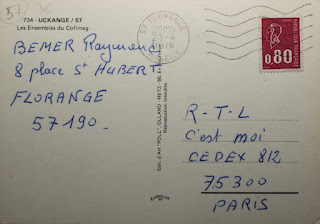 57/
36
734 - UCKANGE / 57
Les Ensembles du Cofimeg
BEMER Raymond
8 place St HUBERT
FLORANGE
57190
Edit. d'Art "POLL", OLLAND - METZ - 58, En
Reproduction interdite
57 FLORANGE
1976
MOSELLE
RÉPUBLIQUE FRANÇAISE
0,80
R - T - L
C'est moi
CEDEX 812
75300
PARIS